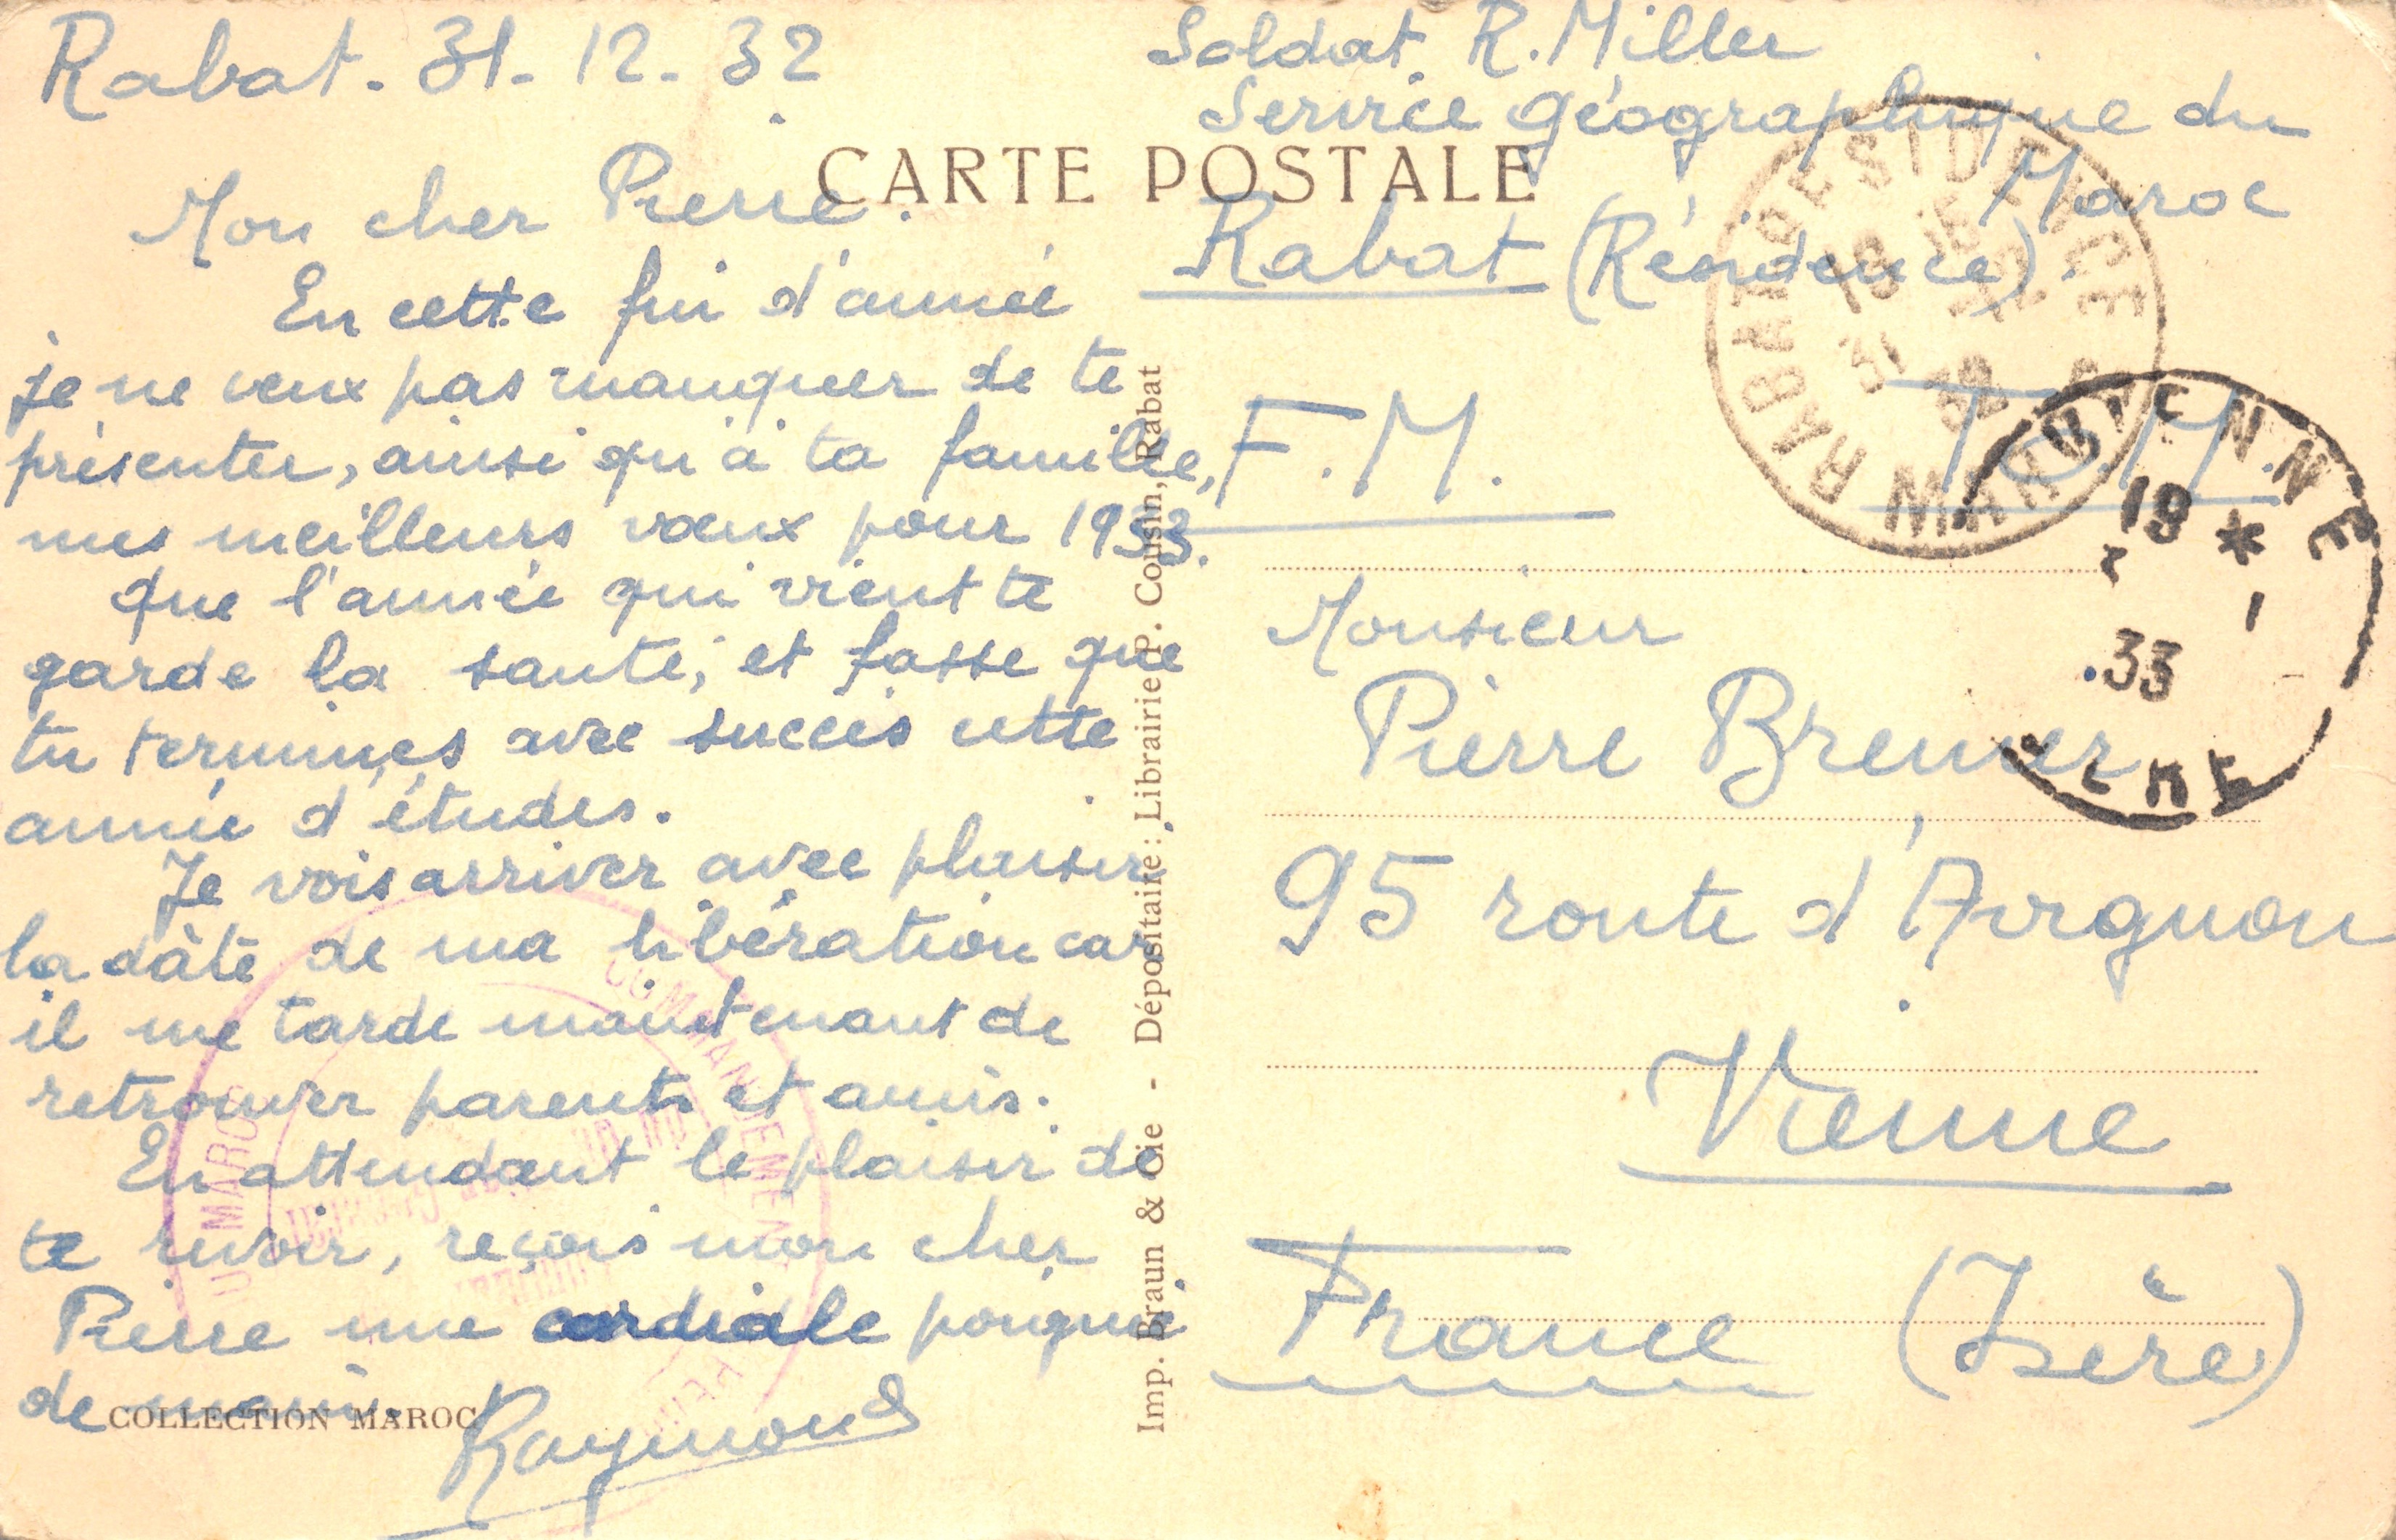 Rabat. 31. 12. 32
Mon cher Pierre.
En cette fin d'année
je ne veux pas manquer de te
présenter, ainsi qu'à ta famille,
mes meilleurs vœux pour 1933.
Que l'année qui vient te
garde la santé, et fasse que
tu termines avec succès cette
année d'études.
Je vois arriver avec plaisir
la dâte de ma libération car
il me tarde maintenant de
retrouver parents et amis.
En attendant le plaisir de
te revoir, reçois mon cher
Pierre une cordiale poignée
de main.
Raymond
COLLECTION MAROC
CARTE POSTALE
Imp. Braun & Cie - Dépositaire : Librairie P. Cousin, Rabat
Soldat R. Miller
Service géographique du
Maroc
Rabat (Résidence).
F.M.
T.O.M.
Monsieur
Pierre Bremer
95 route d'Avignon
Vienne
France (Isère)
RABAT RESIDENCE
31 12
32
MAROC
VIENNE
19 *
2 - 1
33
ISERE
COMMANDEMENT
DU MAROC